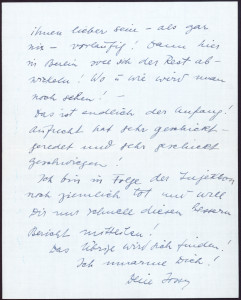 ihnen lieber sein – als gar
nix – vorläufig! Dann hier
in Berlin soll sich der Rest ab-
wickeln! Wo u wie wird man
noch sehen! –
Das ist endlich der Anfang!
Aufricht hat sehr geschickt
geredet und sehr geschickt
geschwiegen!
Ich bin in Folge der Injektion
noch ziemlich tot und will
Dir nur schnell diesen
Bericht mitteilen!
Das Übrige wird sich finden!
Ich umarme Dich!